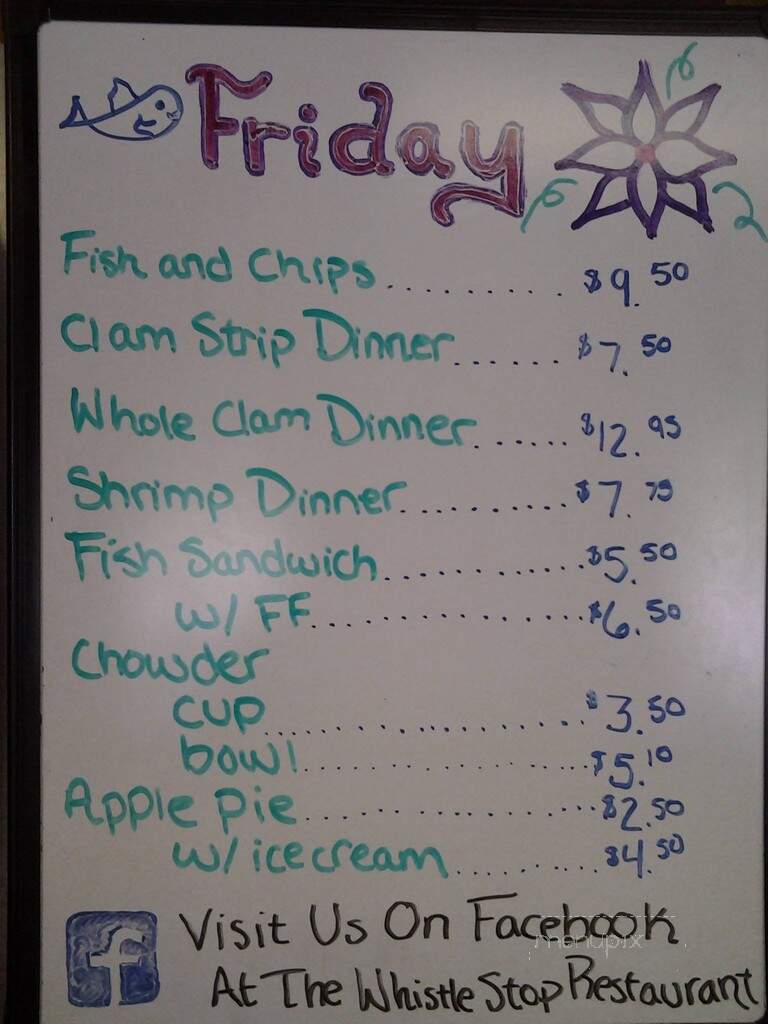 Friday
Fish and Chips.......... $9.50
Clam Strip Dinner....... $7.50
Whole Clam Dinner...... $12.95
Shrimp Dinner.......... $7.75
Fish Sandwich............ $5.50
w/ FF................ $6.50
Chowder
cup.................. $3.50
bowl................. $5.10
Apple pie............... $2.50
w/ icecream.......... $4.50
f Visit Us On Facebook
menupix
At The Whistle Stop Restaurant